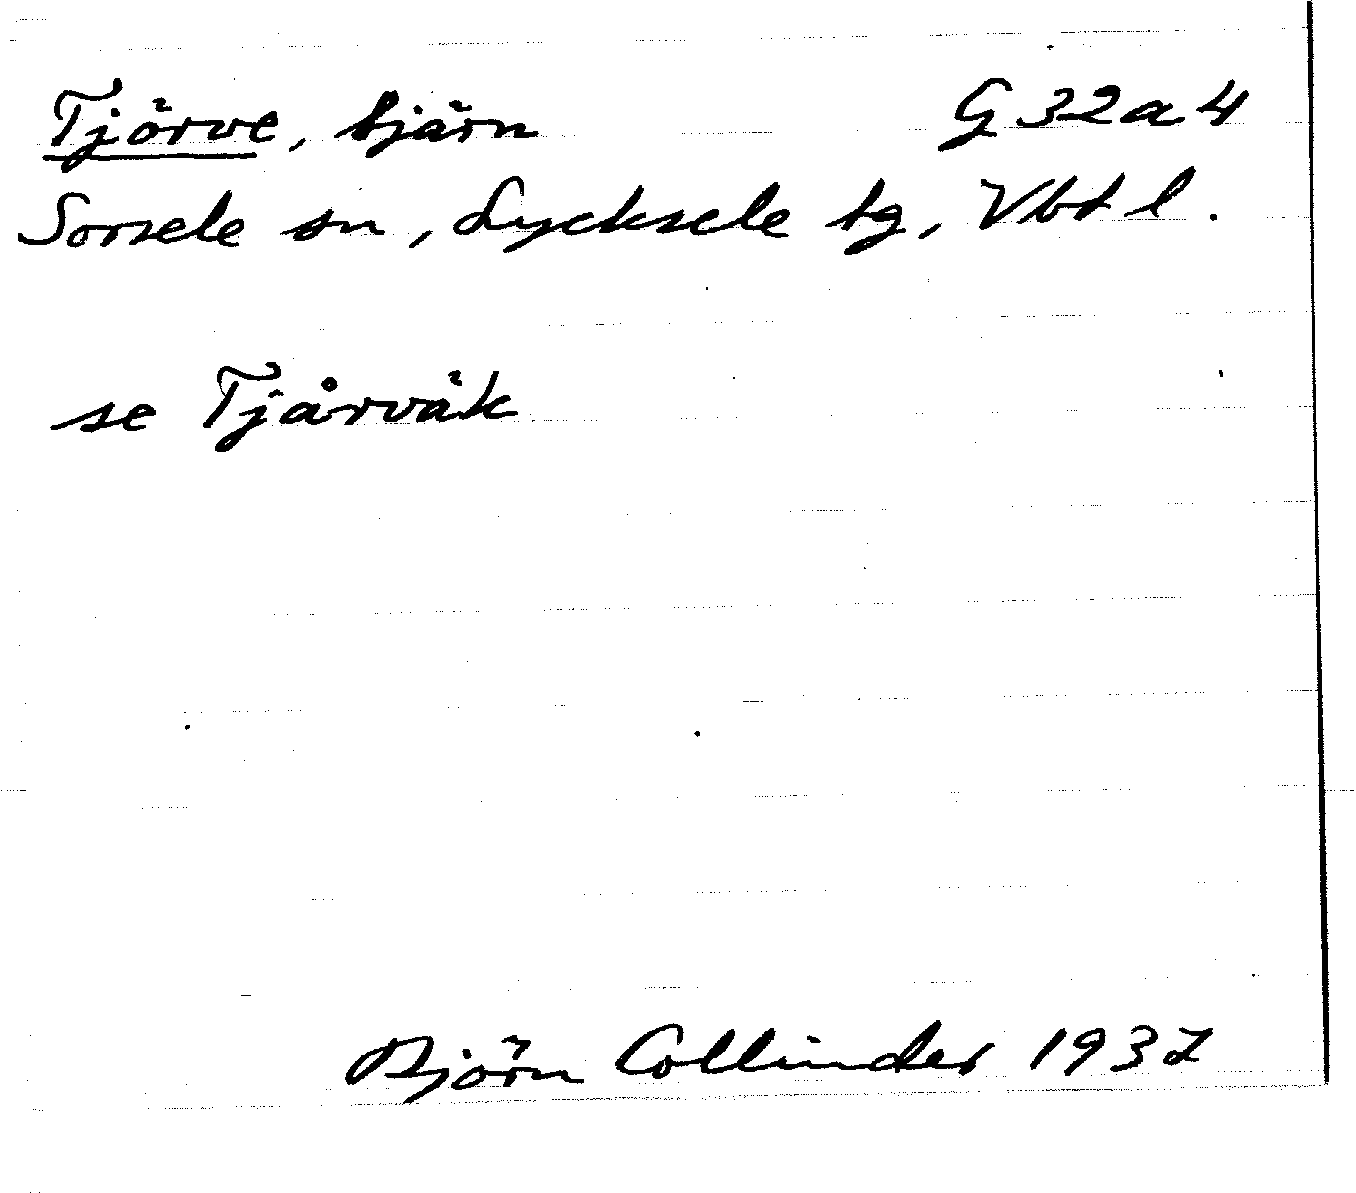 Tjörve, tjärn G 32 a 4
Sorsele sn, Lycksele tg, Vbt l.
se Tjårvåk
Björn Collinder 1937